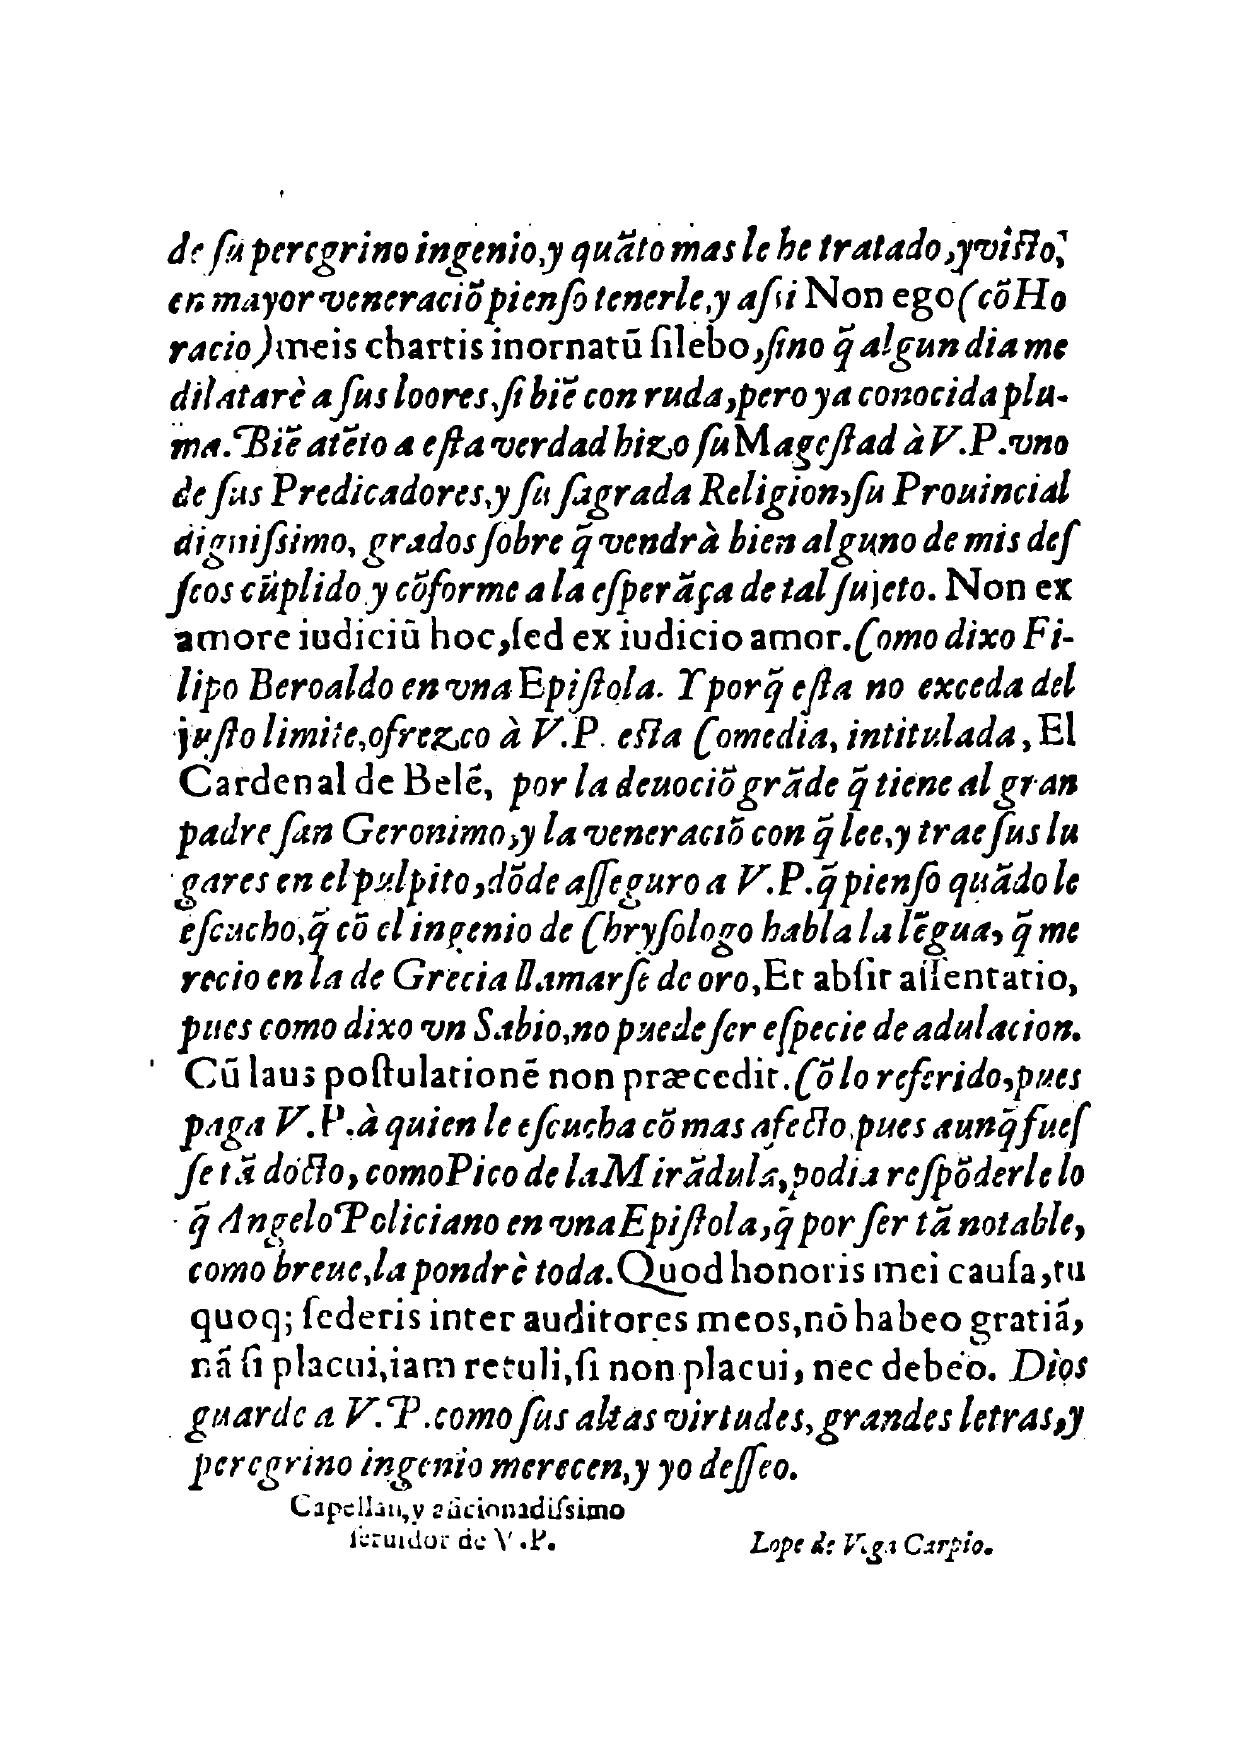 de ſu peregrino ingenio, y quãto mas le he tratado, y viſto,
en mayor veneraciõ pienſo tenerle, y aſsi Non ego (cõ Ho
racio) meis chartis inornatũ ſilebo, ſino q̃ algun dia me
dilatarè a ſus loores, ſi biẽ con ruda, pero ya conocida plu-
ma. Biẽ atẽto a eſta verdad hizo ſu Mageſtad à V. P. vno
de ſus Predicadores, y ſu ſagrada Religion, ſu Prouincial
digniſsimo, grados ſobre q̃ vendrà bien alguno de mis deſ
ſeos cũplido y cõforme a la eſperãça de tal ſujeto. Non ex
amore iudiciũ hoc, ſed ex iudicio amor. Como dixo Fi-
lipo Beroaldo en vna Epiſtola. Y porq̃ eſta no exceda del
juſto limite, ofrezco à V. P. eſta Comedia, intitulada, El
Cardenal de Belẽ, por la deuociõ grãde q̃ tiene al gran
padre ſan Geronimo, y la veneraciõ con q̃ lee, y trae ſus lu
gares en el pulpito, dõde aſſeguro a V. P. q̃ pienſo quãdo le
eſcucho, q̃ cõ el ingenio de Chryſologo habla la lẽgua, q̃ me
recio en la de Grecia llamarſe de oro, Et abſit aſſentatio,
pues como dixo vn Sabio, no puede ſer eſpecie de adulacion.
Cũ laus poſtulationẽ non præcedit. Cõ lo referido, pues
paga V. P. à quien le eſcucha cõ mas afecto, pues aunq̃ fueſ
ſe tã docto, como Pico de la Mirãdula, podia reſpõderle lo
q̃ Angelo Policiano en vna Epiſtola, q̃ por ſer tã notable,
como breue, la pondrè toda. Quod honoris mei cauſa, tu
quoq; ſederis inter auditores meos, nõ habeo gratiã,
nã ſi placui, iam retuli, ſi non placui, nec debeo. Dios
guarde a V. P. como ſus altas virtudes, grandes letras, y
peregrino ingenio merecen, y yo deſſeo.
Capellan, y aficionadiſsimo
ſeruidor de V. P.
Lope de Vega Carpio.